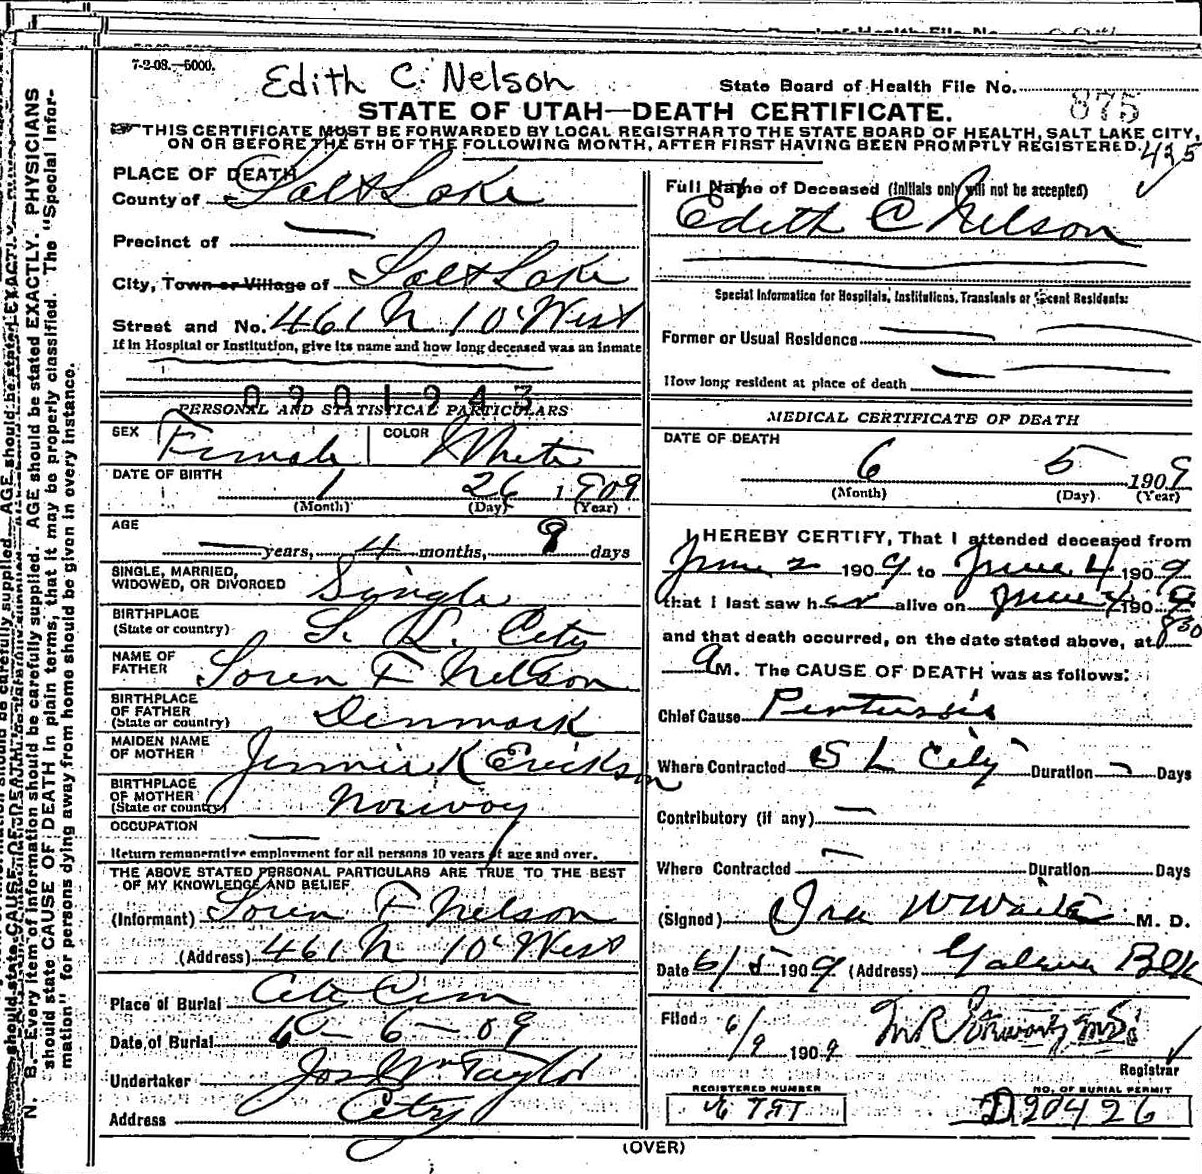 7-2-08.—5000.
Edith C. Nelson
State Board of Health File No.
875
STATE OF UTAH—DEATH CERTIFICATE.
THIS CERTIFICATE MUST BE FORWARDED BY LOCAL REGISTRAR TO THE STATE BOARD OF HEALTH, SALT LAKE CITY,
ON OR BEFORE THE 5TH OF THE FOLLOWING MONTH, AFTER FIRST HAVING BEEN PROMPTLY REGISTERED.
425
PLACE OF DEATH
County of Salt Lake
Precinct of —
City, Town or Village of Salt Lake
Street and No. 461 N 10 West
If in Hospital or Institution, give its name and how long deceased was an inmate
0901943
PERSONAL AND STATISTICAL PARTICULARS
SEX Female COLOR White
DATE OF BIRTH 1 26 1909
(Month) (Day) (Year)
AGE
— years, 4 months, 9 days
SINGLE, MARRIED,
WIDOWED, OR DIVORCED Single
BIRTHPLACE
(State or country) S. L. City
NAME OF
FATHER Soren F Nelson
BIRTHPLACE
OF FATHER
(State or country) Denmark
MAIDEN NAME
OF MOTHER Jennie K Erickson
BIRTHPLACE
OF MOTHER
(State or country) Norway
OCCUPATION —
Return remunerative employment for all persons 10 years of age and over.
THE ABOVE STATED PERSONAL PARTICULARS ARE TRUE TO THE BEST
OF MY KNOWLEDGE AND BELIEF.
(Informant) Soren F Nelson
(Address) 461 N 10 West
Place of Burial City Cem
Date of Burial 6-6-09
Undertaker Jos Wm Taylor
Address City
Full Name of Deceased (Initials only will not be accepted)
Edith C Nelson
Special Information for Hospitals, Institutions, Transients or Recent Residents:
Former or Usual Residence —
How long resident at place of death —
MEDICAL CERTIFICATE OF DEATH
DATE OF DEATH
6 5 1909
(Month) (Day) (Year)
I HEREBY CERTIFY, That I attended deceased from
June 2 1909 to June 4 1909
that I last saw her alive on June 4 1909
and that death occurred, on the date stated above, at 8 30
A M. The CAUSE OF DEATH was as follows:
Chief Cause Pertussis
Where Contracted S L City Duration Days
Contributory (if any) —
Where Contracted — Duration Days
(Signed) Ira W M. D.
Date 6/5 1909 (Address) Blk
Filed 6/9 1909 M R
Registrar
REGISTERED NUMBER
NO. OF BURIAL PERMIT
D20426
(OVER)
N. B.—Every item of information should be carefully supplied. AGE should be stated EXACTLY. PHYSICIANS
should state CAUSE OF DEATH in plain terms, that it may be properly classified. The "Special Infor-
mation" for persons dying away from home should be given in every instance.